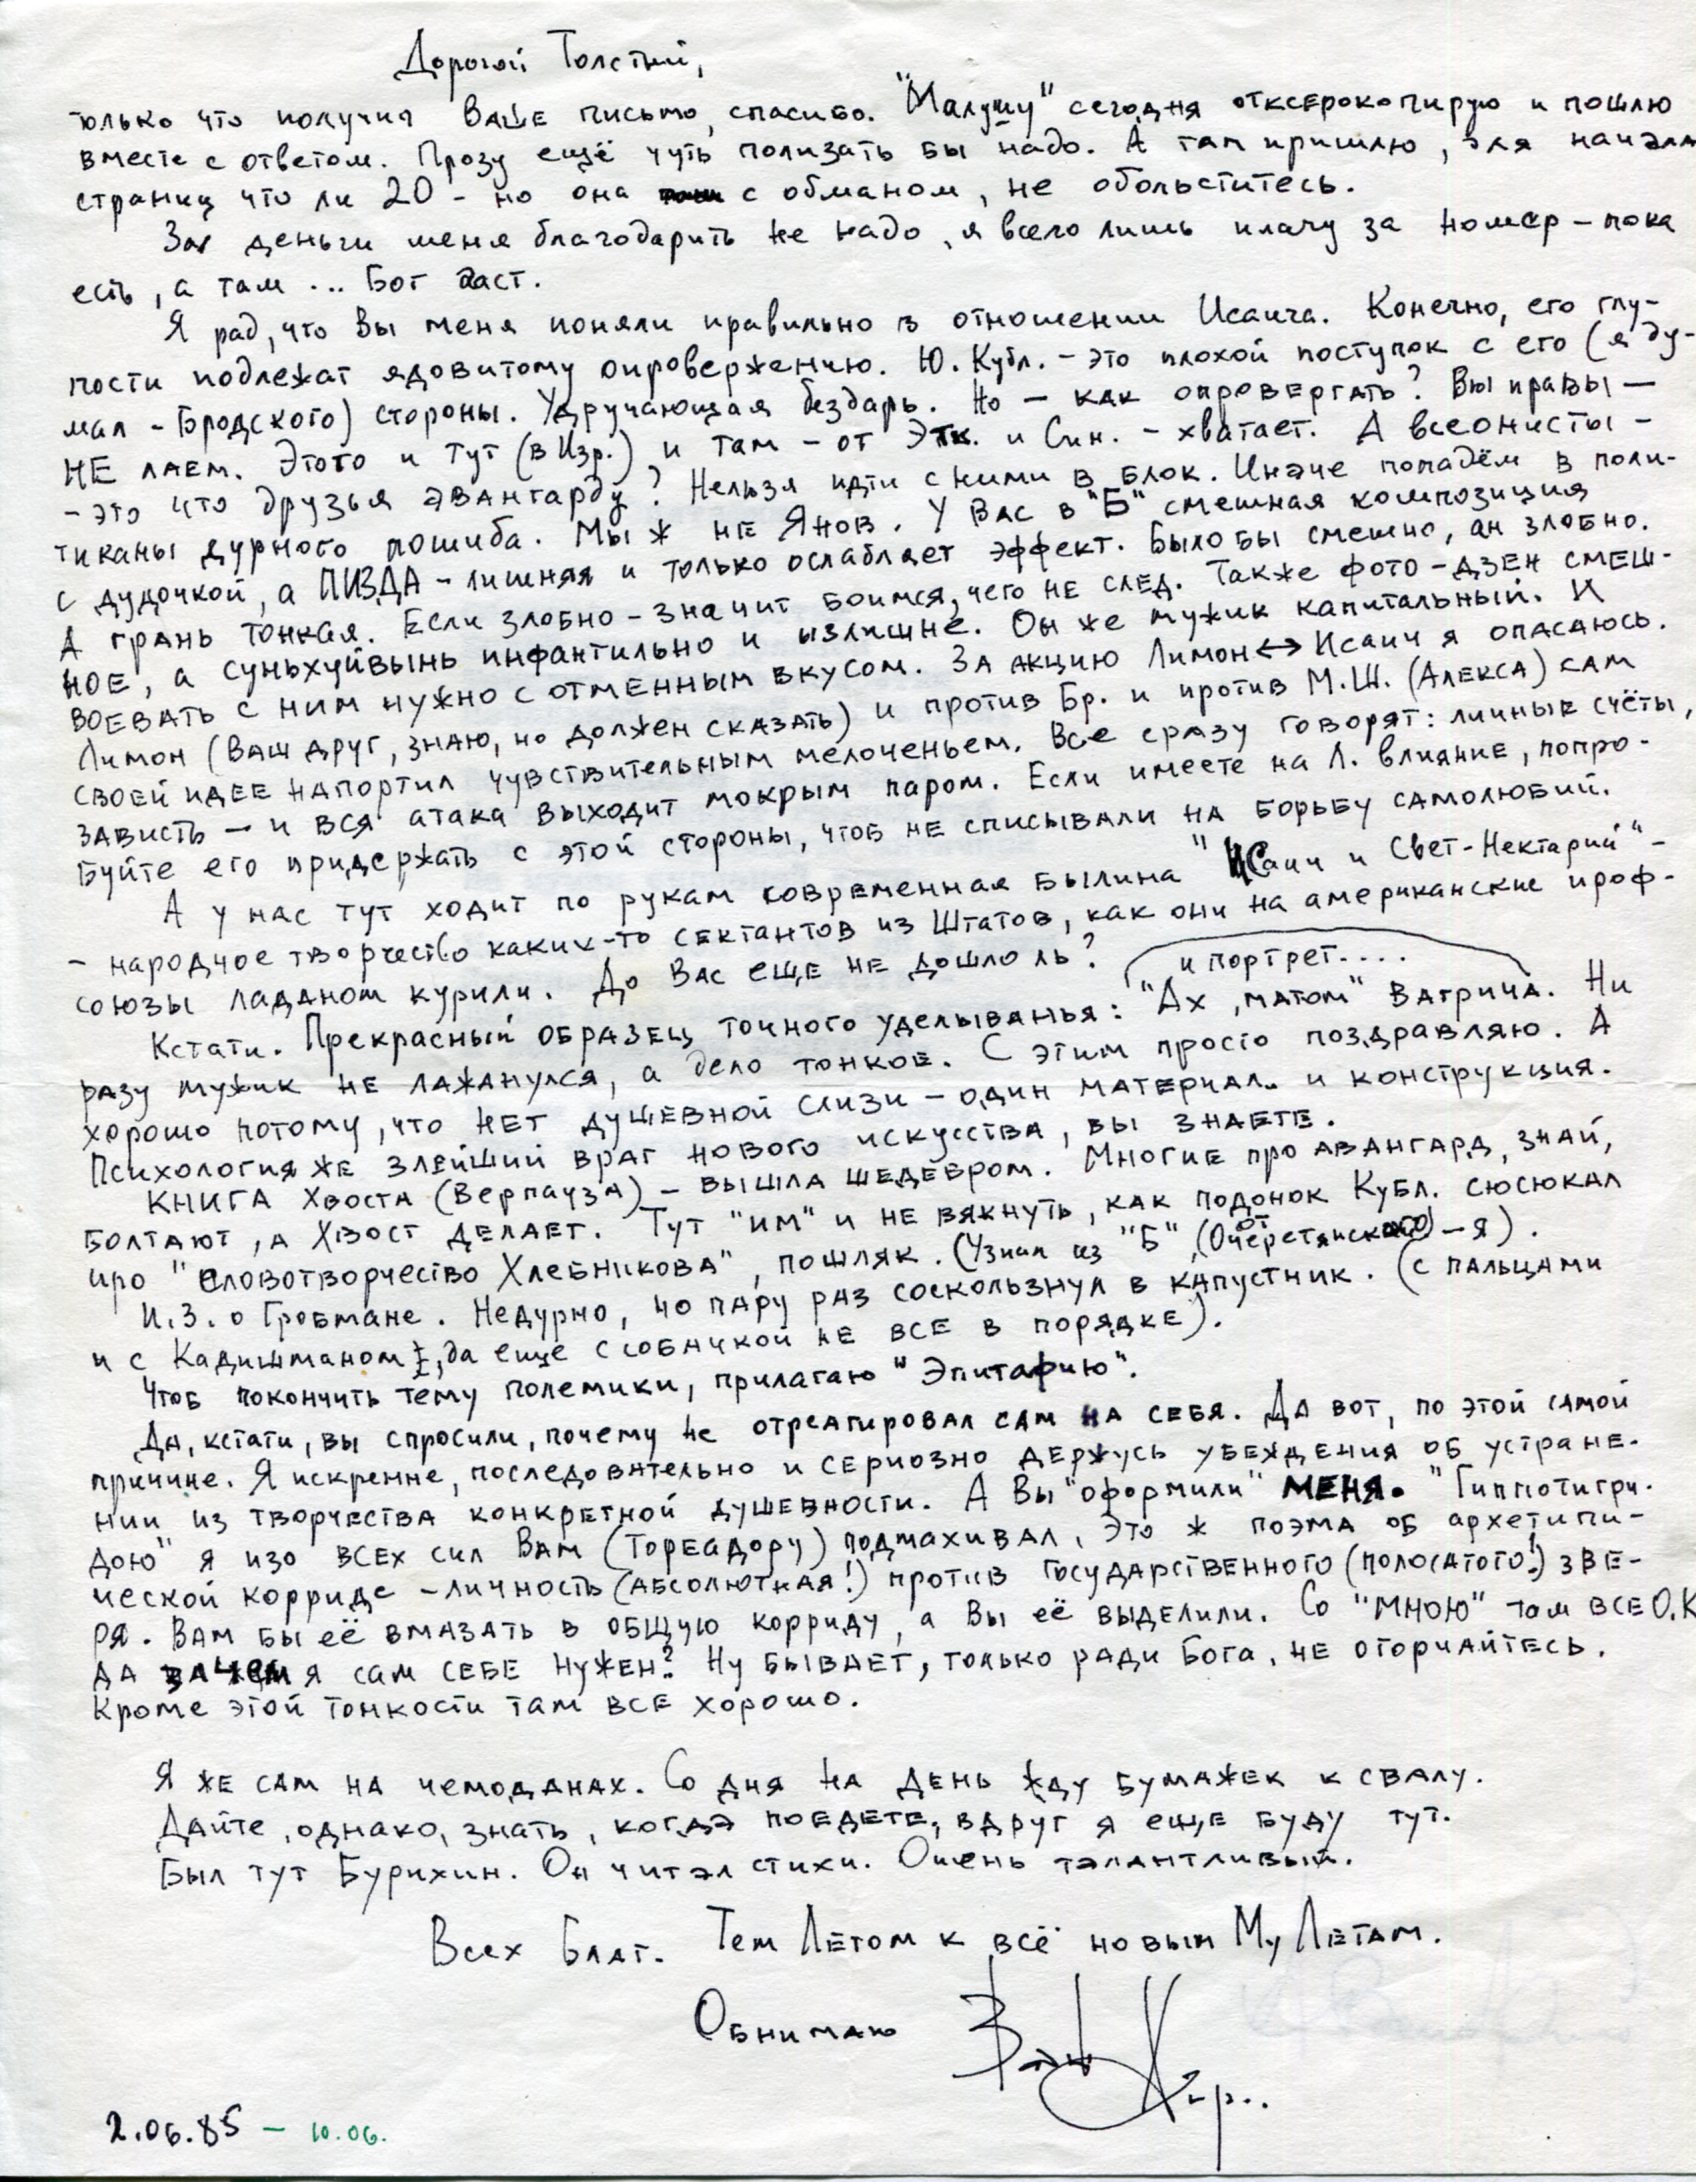 Дорогой Толстый,
только что получил Ваше письмо, спасибо. "Малушу" сегодня отксерокопирую и пошлю
вместе с ответом. Прозу ещё чуть полизать бы надо. А там пришлю, для начала
страниц что ли 20 - но она с обманом, не обольститесь.
За деньги меня благодарить не надо, я всего лишь плачу за номер - пока
есть, а там ... Бог даст.
Я рад, что Вы меня поняли правильно в отношении Исаича. Конечно, его глу-
пости подлежат ядовитому опровержению. Ю. Кубл. - это плохой поступок с его (я ду-
мал - Бродского) стороны. Удручающая бездарь. Но - как опровергать? Вы правы -
НЕ лаем. Этого и тут (в Изр.) и там - от Этк. и Син. - хватает. А всеонисты -
- это что друзья авангарду? Нельзя идти с ними в блок. Иначе попадём в поли-
тиканы дурного пошиба. Мы ж не Янов. У вас в "Б" смешная композиция
с дудочкой, а ПИЗДА - лишняя и только ослабляет эффект. Было бы смешно, ан злобно.
А грань тонкая. Если злобно - значит боимся, чего не след. Также фото - дзен смеш-
ное, а суньхуйвынь инфантильно и излишне. Он же мужик капитальный. И
воевать с ним нужно с отменным вкусом. За акцию Лимон ↔ Исаич я опасаюсь.
Лимон (ваш друг, знаю, но должен сказать) и против Бр. и против М.Ш. (Алекса) сам
своей идее напортил чувствительным мелоченьем. Все сразу говорят: личные счёты,
зависть - и вся атака выходит мокрым паром. Если имеете на Л. влияние, попро-
буйте его придержать с этой стороны, чтоб не списывали на борьбу самолюбий.
А у нас тут ходит по рукам современная былина "Исаич и Свет-Нектарий" -
- народное творчество каких-то сектантов из Штатов, как они на американские проф-
союзы ладаном курили. До Вас еще не дошло ль?
и портрет....
Кстати. Прекрасный образец точного уделыванья: "Ах, матом" Вагрича. Ни
разу мужик не лажанулся, а дело тонкое. С этим просто поздравляю. А
хорошо потому, что нет душевной слизи - один материал и конструкция.
Психология же злейший враг нового искусства, вы знаете.
Книга Хвоста (Верпауза) - вышла шедевром. Многие про авангард, знай,
болтают, а Хвост делает. Тут "им" и не вякнуть, как подонок Кубл. сюсюкал
про "словотворчество Хлебникова", пошляк. (Узнал из "Б", (от Очеретянского) - я).
И.З. о Гробмане. Недурно, но пару раз соскользнул в капустник. (с пальцами
и с Кадишманом, да еще с собачкой не все в порядке).
Чтоб покончить тему полемики, прилагаю "Эпитафию".
Да, кстати, вы спросили, почему не отреагировал сам на себя. Да вот, по этой самой
причине. Я искренне, последовательно и сериозно держусь убеждения об устране-
нии из творчества конкретной душевности. А Вы "оформили" МЕНЯ. "Гиппотигри-
дою" я изо всех сил Вам (Тореадору) подмахивал, это ж поэма об архетипи-
ческой корриде - личность (абсолютная!) против государственного (полосатого!) зве-
ря. Вам бы её вмазать в общую корриду, а Вы её выделили. Со "мною" там все О.К
да зачем я сам себе нужен? Ну бывает, только ради Бога, не огорчайтесь.
Кроме этой тонкости там все хорошо.
Я же сам на чемоданах. Со дня на день жду бумажек к свалу.
Дайте, однако, знать, когда поедете, вдруг я еще буду тут.
Был тут Бурихин. Он читал стихи. Очень талантливый.
Всех Благ. Тем Летом к всё новым Му Летам.
Обнимаю
2.06.85 - 10.06.